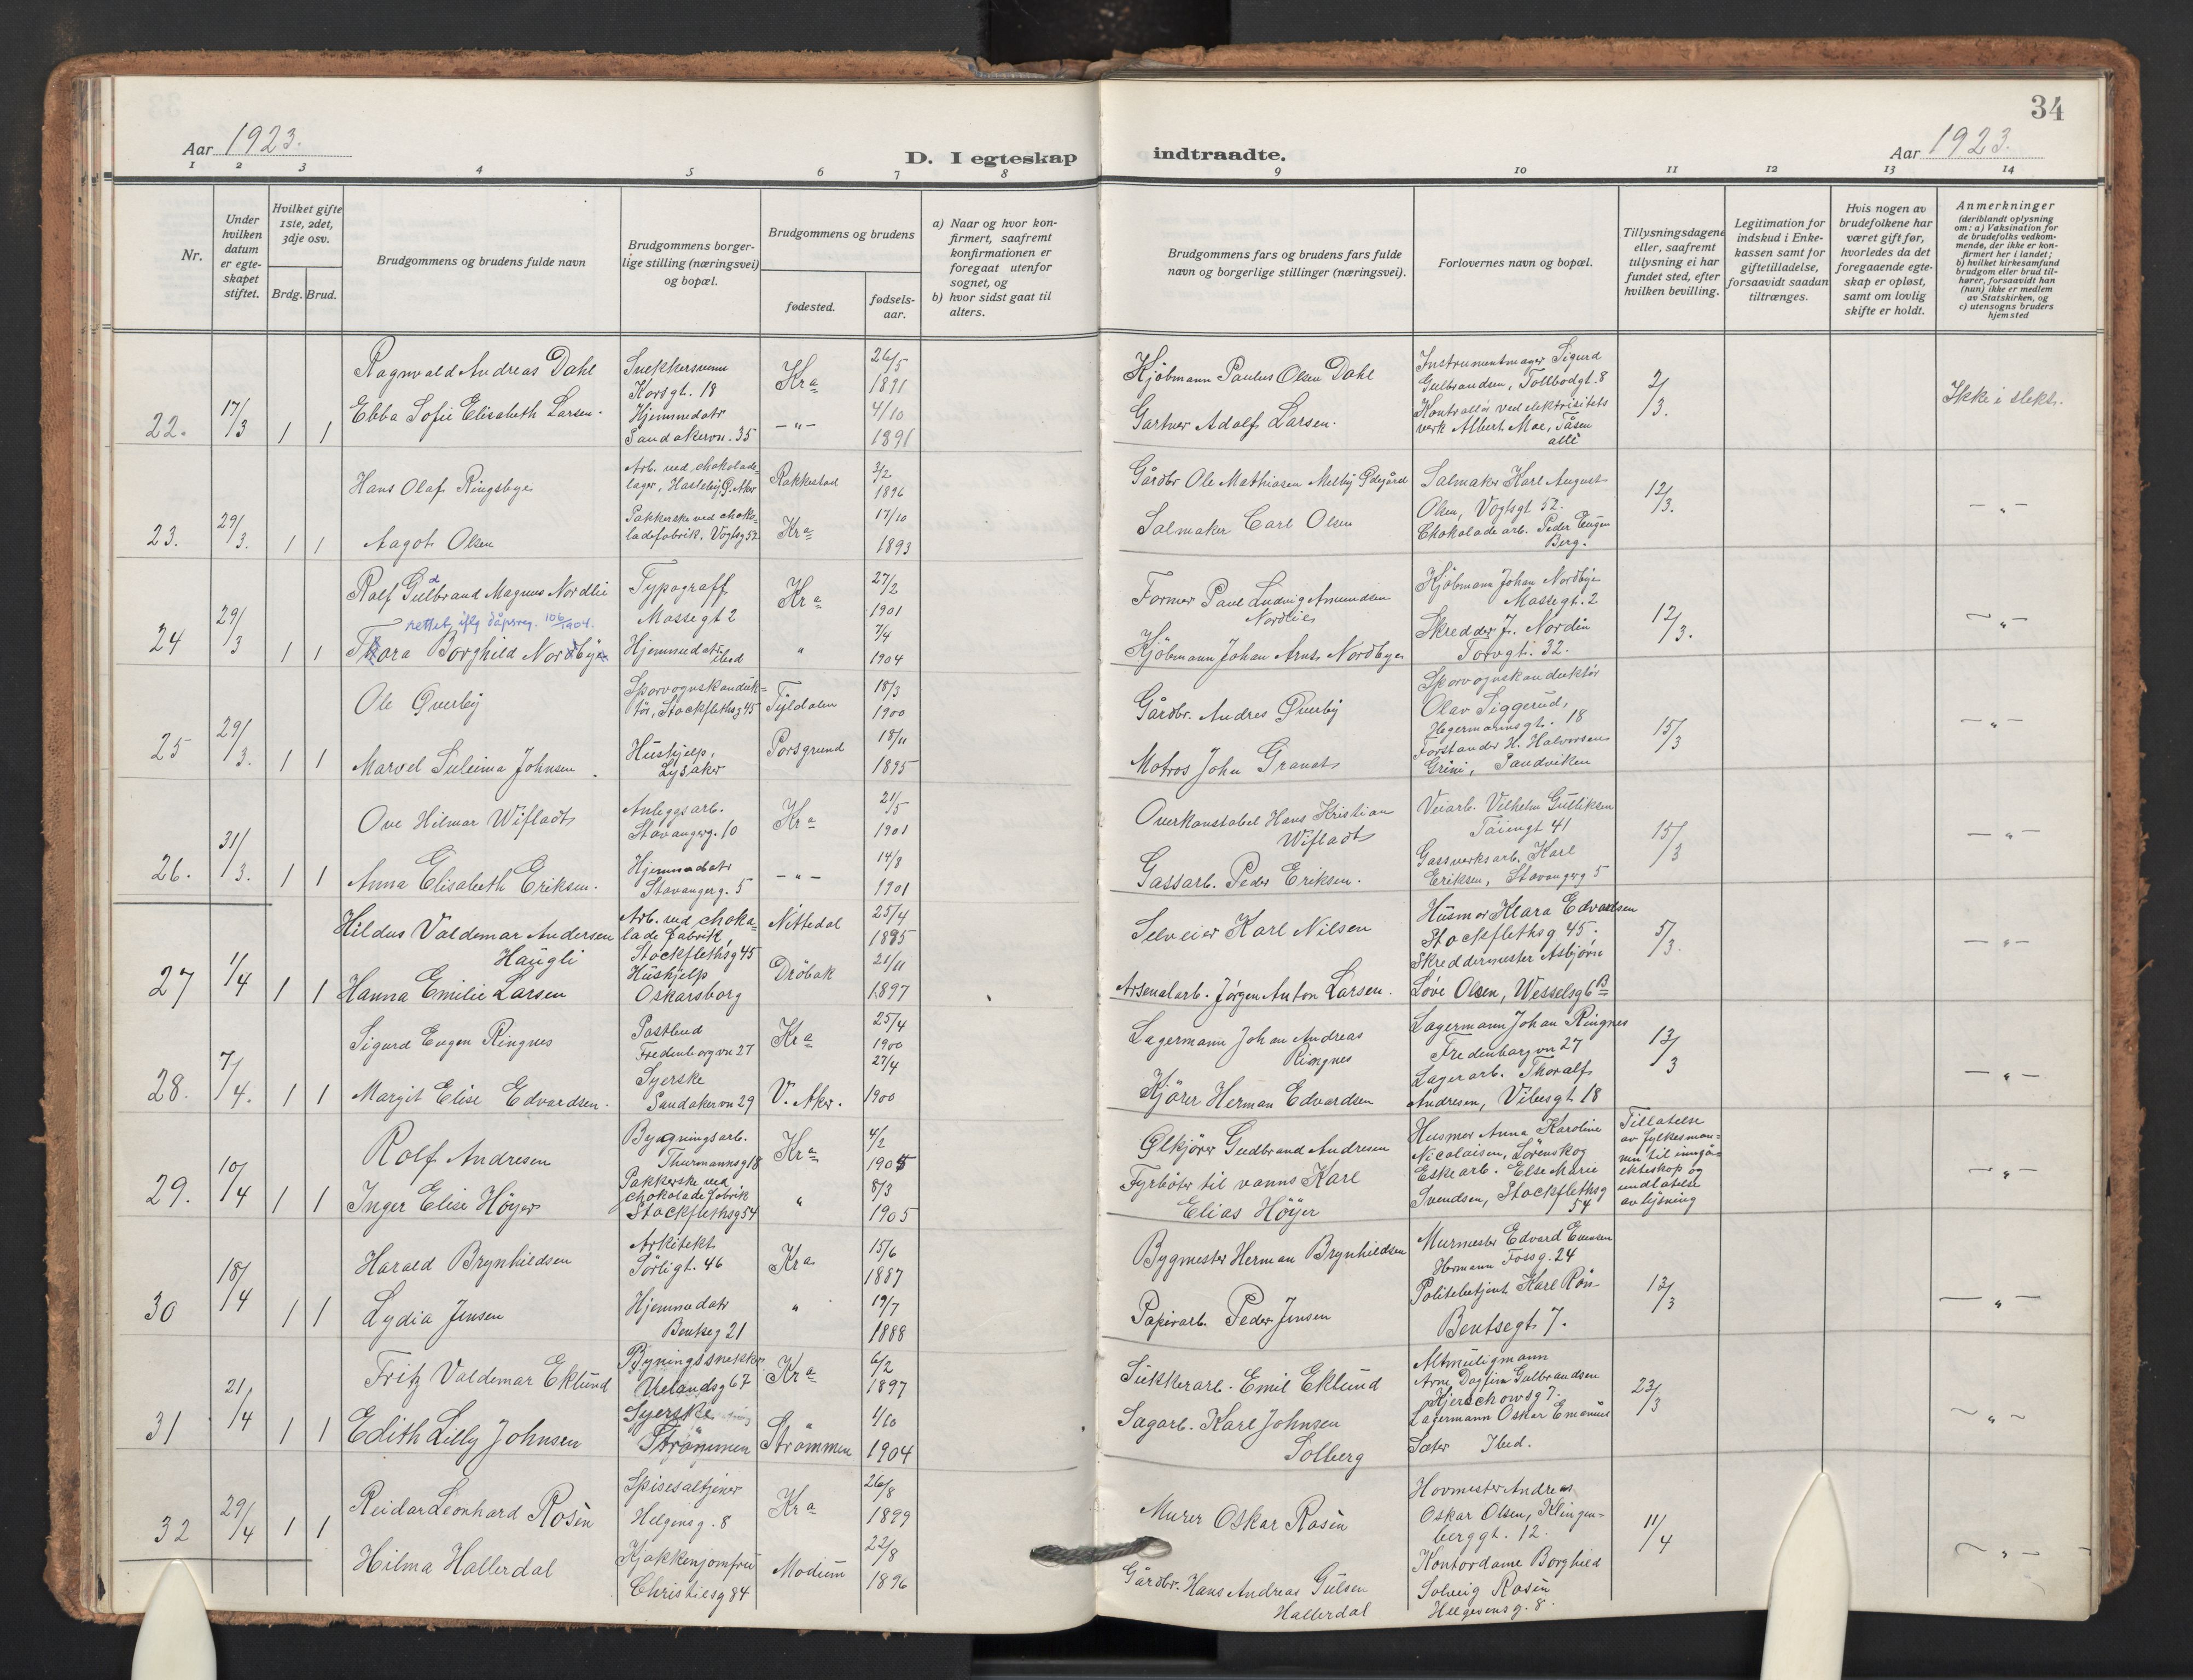 34
Aar 1923.
D. I egteskap indtraadte.
Aar 1923.
1 2 3 4 5 6 7 8 9 10 11 12 13 14
Nr.
Under hvilken datum er egteskapet stiftet.
Hvilket gifte 1ste, 2det, 3dje osv.
Brdg. Brud.
Brudgommens og brudens fulde navn
Brudgommens borgerlige stilling (næringsvei) og bopæl.
Brudgommens og brudens
fødested.
fødselsaar.
a) Naar og hvor konfirmert, saafremt konfirmationen er foregaat utenfor sognet, og
b) hvor sidst gaat til alters.
Brudgommens fars og brudens fars fulde navn og borgerlige stillinger (næringsvei).
Forlovernes navn og bopæl.
Tillysningsdagene eller, saafremt tillysning ei har fundet sted, efter hvilken bevilling.
Legitimation for indskud i Enkekassen samt for giftetilladelse, forsaavidt saadan tiltrænges.
Hvis nogen av brudefolkene har været gift før, hvorledes da det foregaaende egteskap er opløst, samt om lovlig skifte er holdt.
Anmerkninger
(deriblandt oplysning om: a) Vaksination for de brudefolks vedkommende, der ikke er konfirmert her i landet; b) hvilket kirkesamfund brudgom eller brud tilhører, forsaavidt han (hun) ikke er medlem av Statskirken, og c) utensogns bruders hjemsted
22. 17/3 1 1
Ragnvald Andreas Dahl
Snekkersvenn
Korsgt. 18
Kra
26/5 1891
Kjöbmann Paulus Olsen Dahl
Instrumentmager Sigurd
Gulbrandsen, Tollbodgt. 8
2/3.
Ikke i slekt.
Ebba Sofie Elisabeth Larsen.
Hjemmedatr
Sandakervn. 35
— " —
4/10 1891
Gartner Adolf Larsen.
Kontrollör ved elektrisitets
verk Albert Moe, Tåsen
allé
23. 29/3. 1 1
Hans Olaf Ringsbye
Arb. ved chokolade=
lager, Hasleby, Ö. Aker
Rakkestad
3/2 1896
Gårdbr Ole Mathiasen Melby Ödegård
Salmaker Karl August
Olsen, Vogtsgt 52.
12/3.
— " —
Aagot Olsen
Pakkerske ved choko=
ladefabrik. Vogtsg 52
Kra
17/10 1893
Salmaker Carl Olsen
Chokolade arb. Peder Eugen
Berg.
24 29/3 1 1
Rolf Gulbrand Magnus Nordlie
d
Typograff
Massegt 2
Kra
27/2 1901
Former Paul Ludvig Amundsen
Nordlie
Kjöbmann Johan Nordbye
Massegt. 2
12/3.
— " —
rettet iflg dåpsreg. 106/1904.
Thora Borghild Nordbye
Hjemmedatr
ibid
"
7/4 1904
Kjöbmann Johan Arnt Nordbye
Skredder J. Nordin
Torvgt. 32.
25 29/3. 1 1
Ole Øverby
Sporvognskonduk=
tör, Stockflethsg 45
Tyldalen
18/3 1900
Gårdbr. Andres Øverby
Sporvognskonduktör
Olav Siggerud,
Hegermannsgt. 18
15/3
— " —
Marvel Suleima Johnsen.
Hushjelp,
Lysaker
Porsgrund
18/11 1895
Matros John Granat
Forstander H. Halvorsen
Grini, Sandviken
26. 31/3. 1 1
Ove Hilmar Wifladt
Anleggsarb.
Stavangerg. 10
Kra
21/5 1901
Overkonstabel Hans Kristian
Wifladt
Veiarb. Vilhelm Gulliksen
Töiengt 41
15/3
— " —
Anna Elisabeth Eriksen.
Hjemmedatr
Stavangerg. 5
— " —
14/8 1901
Gassarb. Peder Eriksen.
Gassverksarb. Karl
Eriksen, Stavangerg 5
27 1/4 1 1
Hildus Valdemar Andersen
Haugli
Arb. ved choko
lade fabrik,
Stockflethsg 45
Nittedal
25/4 1895
Selveier Karl Nilsen
Husmor Klara Edvardsen
Stockflethsg 45.
5/3.
— " —
Hanna Emilie Larsen
Hushjelp
Oskarsborg
Dröbak
21/11 1897
Arsenalarb. Jørgen Anton Larsen.
Skreddermester Asbjørn
Løve Olsen, Wesselsg 6 B
28. 7/4. 1 1
Sigurd Eugen Ringnes
Postbud
Fredenborgvn 27
Kra
25/4 1900
Lagermann Johan Andreas
Ringnes
Lagermann Johan Ringnes
Fredenborgvn 27
13/3
— " —
Margit Elise Edvardsen.
Syerske
Sandakervn 29
V. Aker.
27/4 1900
Kjörer Herman Edvardsen
Lagerarb. Thoralf
Andresen, Vibesgt 18
29. 10/4 1 1
Rolf Andresen
Bygningsarb.
Thurmannsg 18
Kra
4/2 1905
Ølkjörer Gudbrand Andresen
Husmor Anna Karoline
Nicolaisen, Lörenskog
Tillatelse
av fylkesman=
nen til inngå=
ekteskap og
undlatelse
av lysning
— " —
Inger Elise Höyer
Pakkerske ved
chokolade fabrik
Stockflethsg 54
"
8/3 1905
Fyrböter til vanns Karl
Elias Höyer
Eskearb. Else Marie
Svendsen, Stockflethsg
54
30 18/4 1 1
Harald Brynhildsen
Arkitekt
Sörligt. 46
Kra
15/6 1887
Bygmester Herman Brynhildsen
Murmester Edvard Evensen
Hermann Fossg. 24
13/3
— " —
Lydia Jensen
Hjemmedatr
Bentseg 21
"
19/7 1888
Papirarb. Peder Jensen
Politibetjent Karl Rön
Bentsegt 7.
31 21/4 1 1
Fritz Valdemar Eklund
Byningssnekker
Uelandsg 67
Kra
6/2 1897
Snekkerarb. Emil Eklund
Altmuligmann
Arne Dagfin Gulbrandsen
Hjerschowsg 7.
23/3
— " —
Edith Lilly Johnsen
Syerske
Strömmen
Strömmen
4/10 1904
Sagarb. Karl Johnsen
Solberg
Lagermann Oskar Emanuel
Sæter Ibid.
32 29/4 1 1
Reidar Leonhard Rosén
Spisesaltjener
Helgensg. 8
Kra
26/8 1899
Murer Oskar Rosén
Hovmester Andreas
Oskar Olsen, Klingen=
berggt. 12.
11/4
— " —
Hilma Hallerdal
Kjøkkenjomfru
Christiesg 84
Modum
22/8 1896
Gårdbr. Hans Andreas Gulsen
Hallerdal
Kontordame Borghild
Solveig Rosén
Helgesensg. 8.